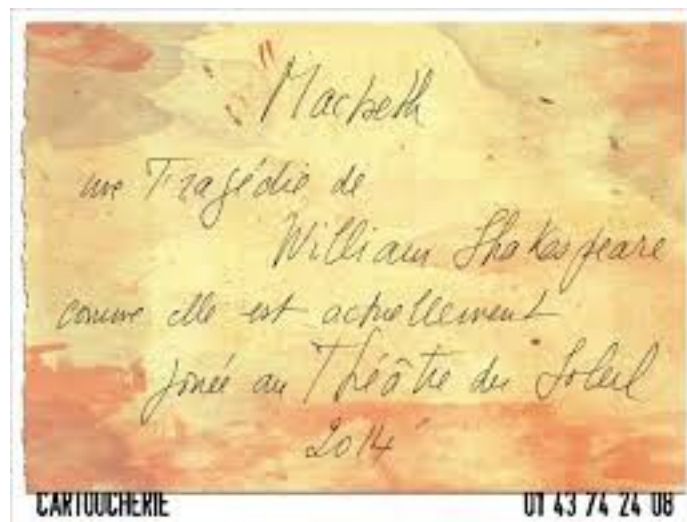 Macbeth
une Tragédie de
William Shakespeare
comme elle est actuellement
jouée au Théâtre du Soleil
2014
CARTOUCHERIE 01 43 74 24 08